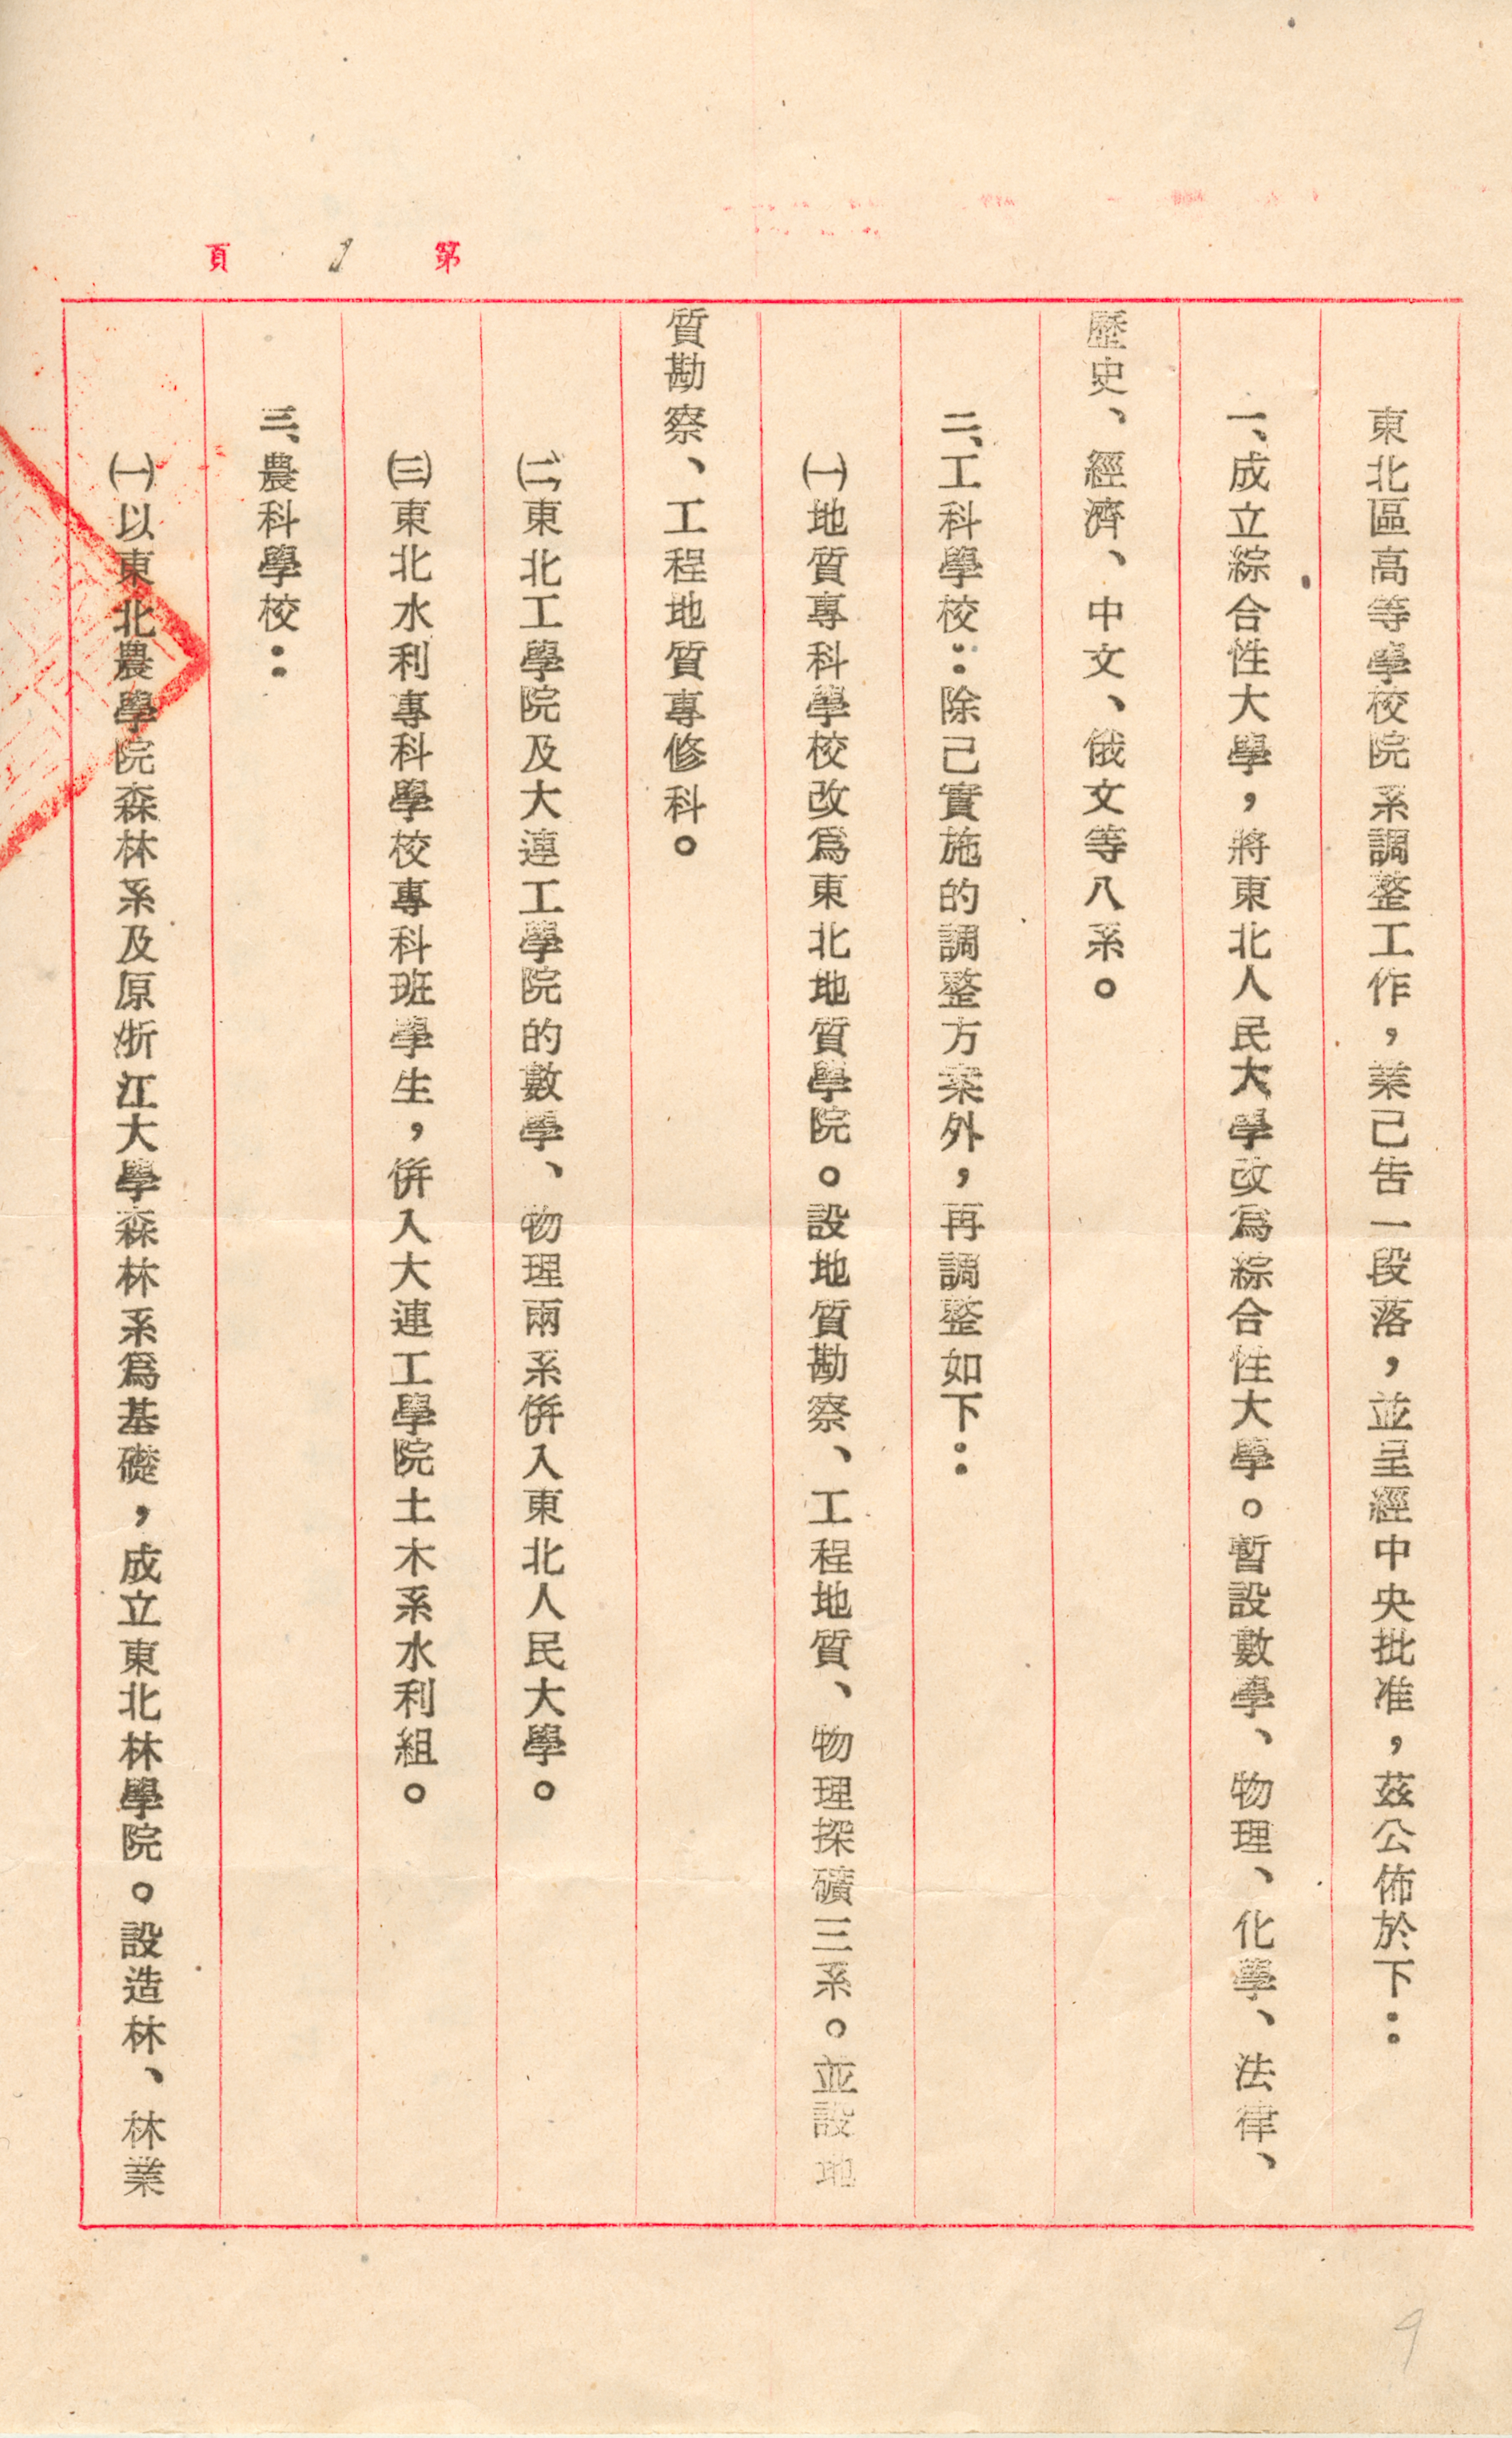 第1頁
東北區高等學校院系調整工作，業已告一段落，並呈經中央批准，茲公佈於下：
一、成立綜合性大學，將東北人民大學改爲綜合性大學。暫設數學、物理、化學、法律、
歷史、經濟、中文、俄文等八系。
二、工科學校：除已實施的調整方案外，再調整如下：
㈠地質專科學校改爲東北地質學院。設地質勘察、工程地質、物理探礦三系。並設地
質勘察、工程地質專修科。
㈡東北工學院及大連工學院的數學、物理兩系併入東北人民大學。
㈢東北水利專科學校專科班學生，併入大連工學院土木系水利組。
三、農科學校：
㈠以東北農學院森林系及原浙江大學森林系爲基礎，成立東北林學院。設造林、林業
9